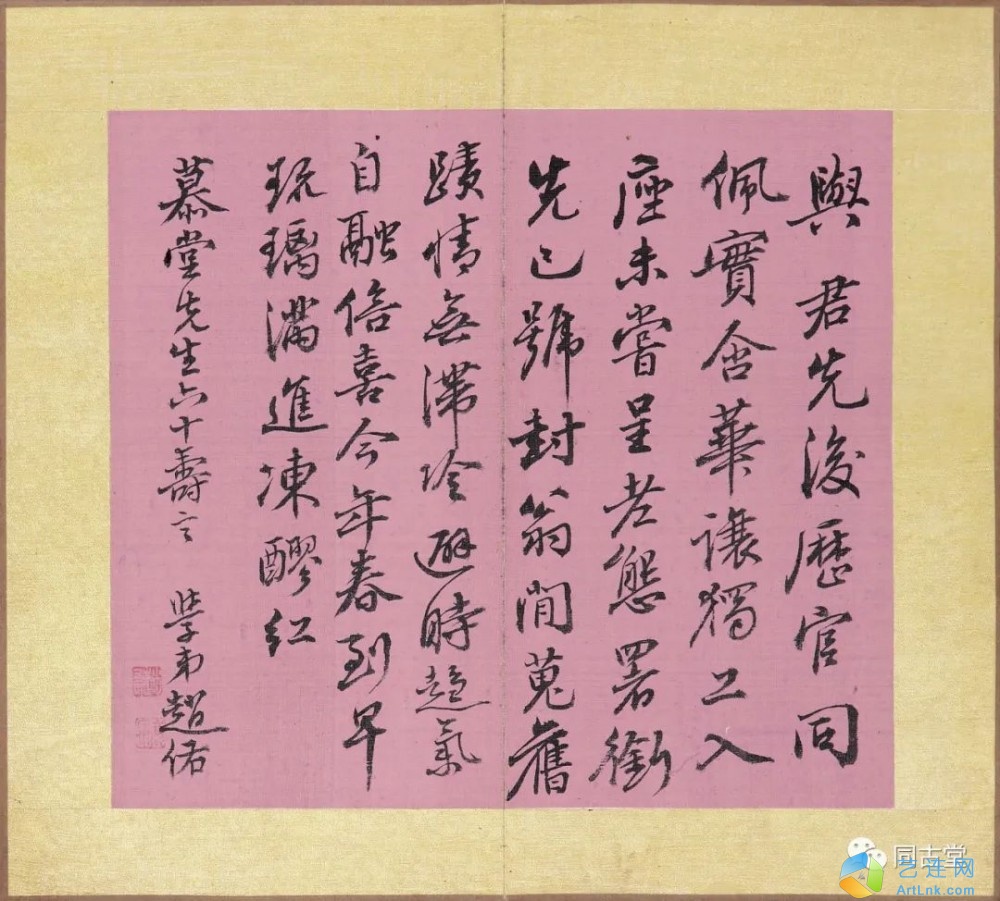 與君先後歷官同
佩實含華讓獨工入
座未嘗呈老態署銜
先已號封翁閒蒐舊
蹟情無滯冷避時趨氣
自融倍喜今年春到早
玻璃滿進凍醪紅
慕堂先生六十壽言 學弟趙佑
同古堂
艺连网
ArtLnk.com